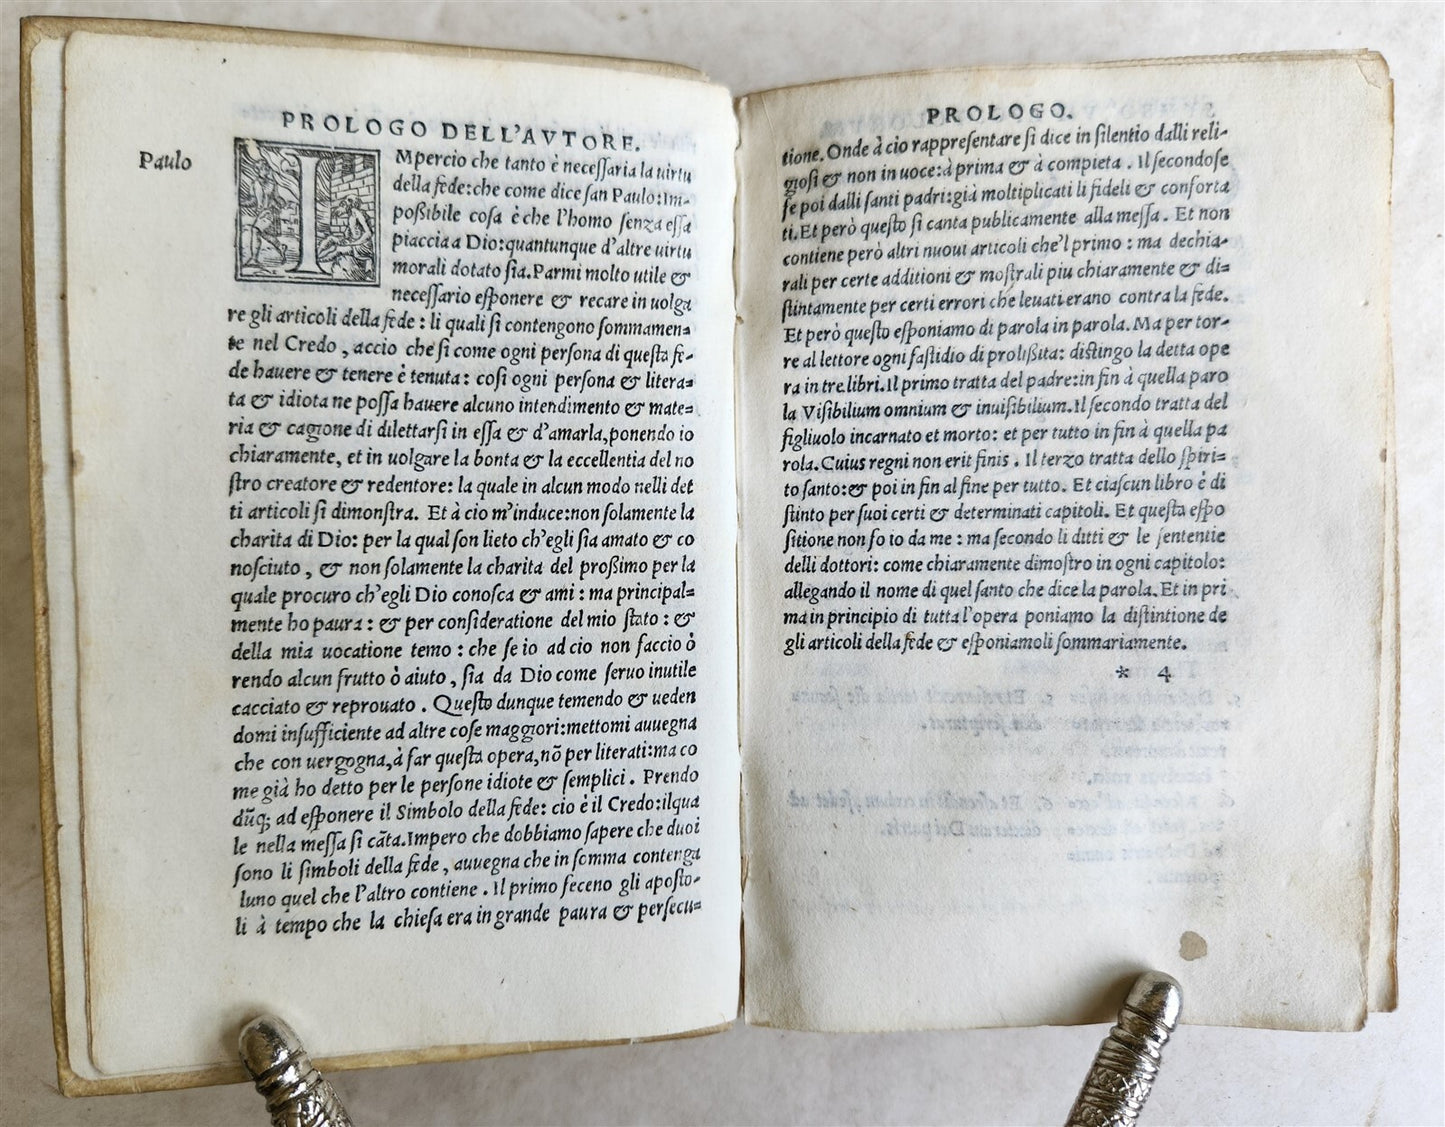 PROLOGO DELL'AVTORE.
Paulo
IMpercio che tanto è necessaria la uirtu
della fede:che come dice san Paulo:Im-
possibile cosa è che l'homo senza essa
piaccia a Dio:quantunque d'altre uirtu
morali dotato sia.Parmi molto utile &
necessario esponere & recare in uolga
re gli articoli della fede : li quali si contengono sommamen=
te nel Credo , accio che si come ogni persona di questa fe-
de hauere & tenere è tenuta: cosi ogni persona & litera=
ta & idiota ne possa hauere alcuno intendimento & mate=
ria & cagione di dilettarsi in essa & d'amarla,ponendo io
chiaramente, et in uolgare la bonta & la eccellentia del no
stro creatore & redentore: la quale in alcun modo nelli det
ti articoli si dimonstra. Et à cio m'induce:non solamente la
charita di Dio: per la qual son lieto ch'egli sia amato & co
nosciuto , & non solamente la charita del prossimo per la
quale procuro ch'egli Dio conosca & ami : ma principal=
mente ho paura : & per consideratione del mio stato : &
della mia uocatione temo : che se io ad cio non faccio ò
rendo alcun frutto ò aiuto, sia da Dio come seruo inutile
cacciato & reprouato . Questo dunque temendo & ueden
domi insufficiente ad altre cose maggiori:mettomi auuegna
che con uergogna,à far questa opera,nõ per literati:ma co
me già ho detto per le persone idiote & semplici . Prendo
dũq; ad esponere il Simbolo della fede: cio è il Credo:ilqua
le nella messa si cãta.Impero che dobbiamo sapere che duoi
sono li simboli della fede , auuegna che in somma contenga
luno quel che l'altro contiene . Il primo feceno gli aposto-
li à tempo che la chiesa era in grande paura & persecu=
PROLOGO.
tione. Onde à cio rappresentare si dice in silentio dalli reli-
giosi & non in uoce:à prima & à compieta . Il secondo fe
se poi dalli santi padri:già moltiplicati li fideli & conforta
ti. Et però questo si canta publicamente alla messa . Et non
contiene però altri nuoui articoli che'l primo : ma dechia-
rali per certe additioni & mostrali piu chiaramente & di=
stintamente per certi errori che leuati erano contra la fede.
Et però questo esponiamo di parola in parola. Ma per tor-
re al lettore ogni fastidio di prolissita: distingo la detta ope
ra in tre libri.Il primo tratta del padre:in fin à quella paro
la Visibilium omnium & inuisibilium.Il secondo tratta del
figliuolo incarnato et morto: et per tutto in fin à quella pa
rola. Cuius regni non erit finis . Il terzo tratta dello spiri-
to santo:& poi in fin al fine per tutto. Et ciascun libro è di
stinto per suoi certi & determinati capitoli. Et questa espo
sitione non fo io da me : ma secondo li ditti & le sententie
delli dottori: come chiaramente dimostro in ogni capitolo:
allegando il nome di quel santo che dice la parola. Et in pri
ma in principio di tutta l'opera poniamo la distintione de
gli articoli della fede & esponiamoli sommariamente.
* 4